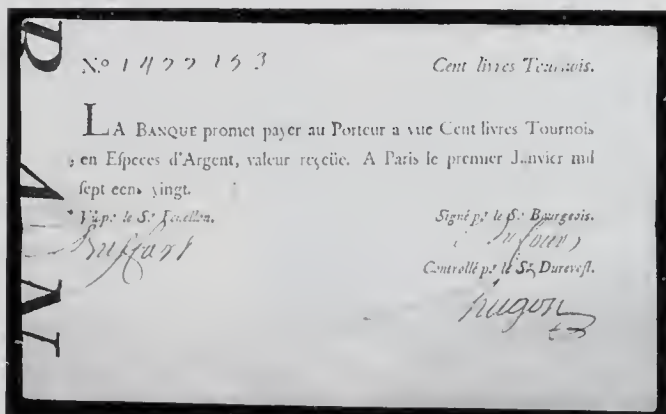 N.º
Cent livres Tournois.
LA BANQUE promet payer au Porteur a vue Cent livres Tournois
en Especes d'Argent, valeur reçeüe. A Paris le premier Janvier mil
sept cens vingt.
Vû p.r le S.r Fenellon.
Signé p.r le S.r Bourgeois.
Controllé p.r le S.r Durevest.
hugon